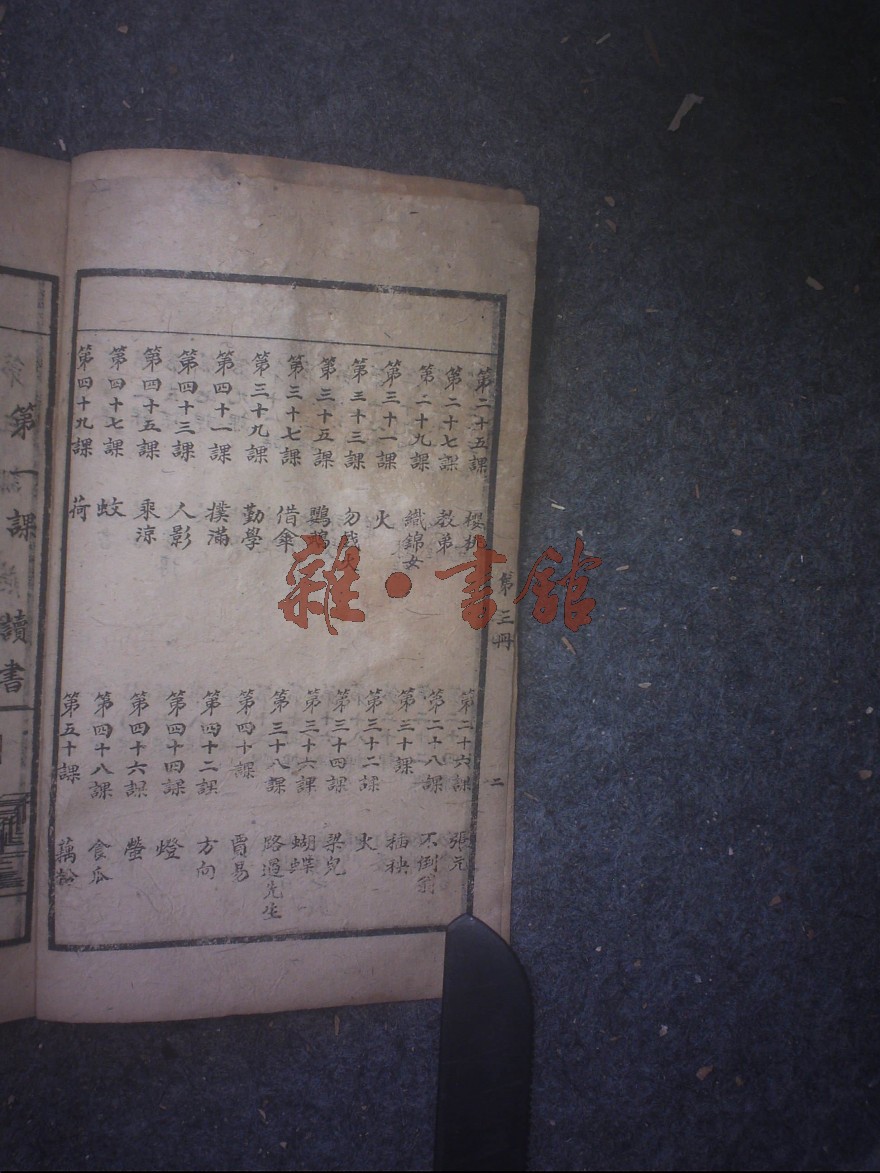 第二十五課 櫻桃
第二十六課 張元
第二十七課 教弟
第二十八課 不倒翁
第二十九課 織錦女
第三十課 插秧
第三十一課 火
第三十二課 火
第三十三課 勿
第三十四課 梁兒
第三十五課 鸚鵡
第三十六課 蝴蝶
第三十七課 借傘
第三十八課 路遇先生
第三十九課 勤學
第四十課 賈易
第四十一課 撲滿
第四十二課 方向
第四十三課 人影
第四十四課 燈
第四十五課 乘涼
第四十六課 螢
第四十七課 蚊
第四十八課 食瓜
第四十九課 荷
第五十課 藕
第三冊
二
雜·書館
第一課
讀書